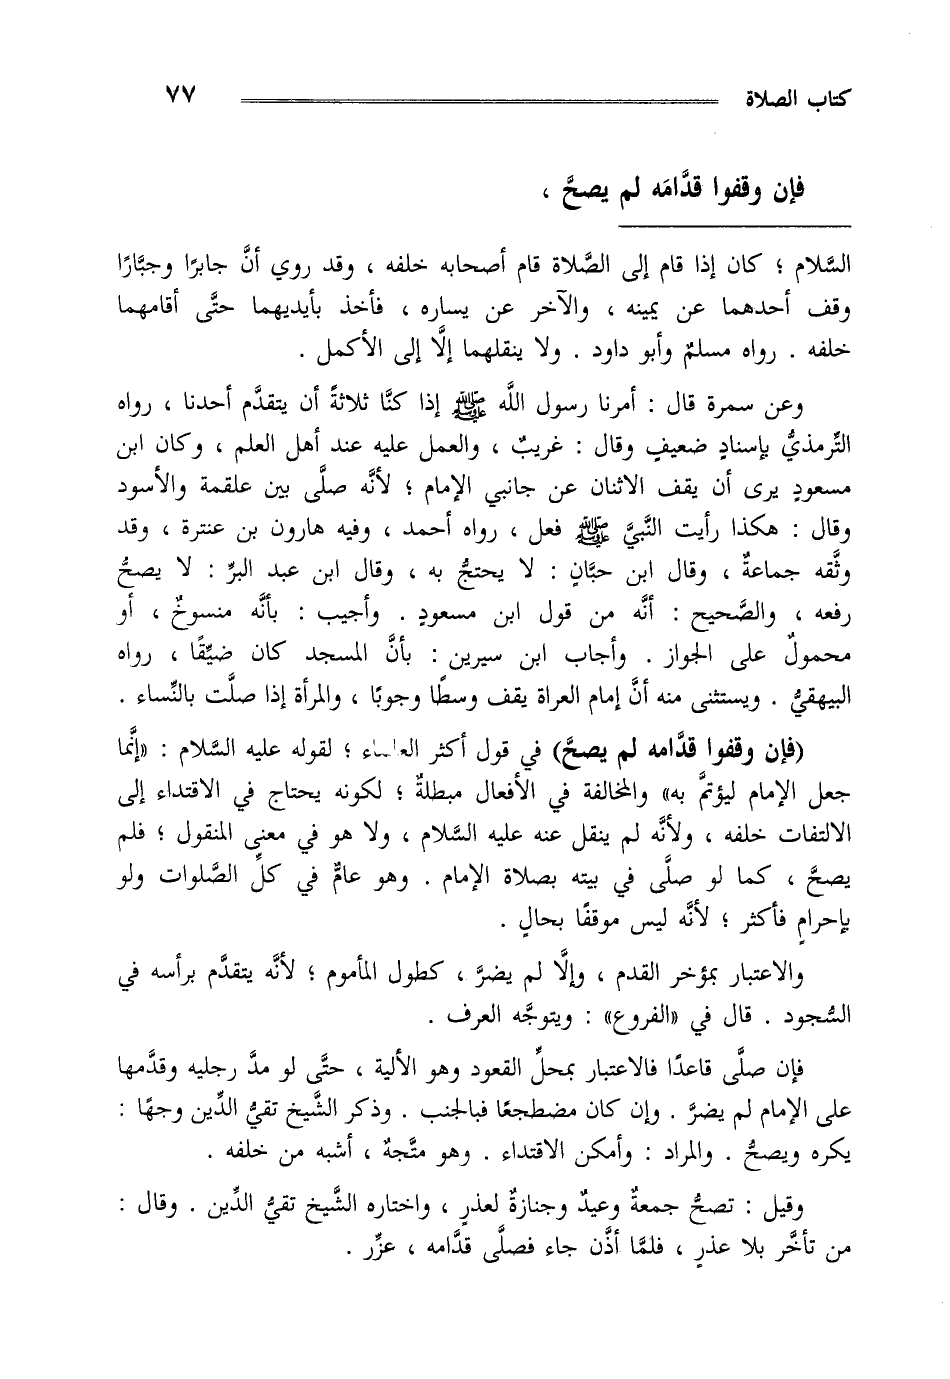 كتاب الصلاة ٧٧
فإن وقفوا قدَّامَه لم يصحَّ ،
السَّلام ؛ كان إذا قام إلى الصَّلاة قام أصحابه خلفه ، وقد روي أنَّ جابرًا وجبَّارًا
وقف أحدهما عن يمينه ، والآخر عن يساره ، فأخذ بأيديهما حتَّى أقامهما
خلفه . رواه مسلمٌ وأبو داود . ولا ينقلهما إلَّا إلى الأكمل .
وعن سمرة قال : أمرنا رسول اللَّه ﷺ إذا كنَّا ثلاثةً أن يتقدَّم أحدنا ، رواه
التِّرمذيُّ بإسنادٍ ضعيفٍ وقال : غريبٌ ، والعمل عليه عند أهل العلم ، وكان ابن
مسعودٍ يرى أن يقف الاثنان عن جانبي الإمام ؛ لأنَّه صلَّى بين علقمة والأسود
وقال : هكذا رأيت النَّبيَّ ﷺ فعل ، رواه أحمد ، وفيه هارون بن عنترة ، وقد
وثَّقه جماعةٌ ، وقال ابن حبَّانٍ : لا يحتجُّ به ، وقال ابن عبد البرِّ : لا يصحُّ
رفعه ، والصَّحيح : أنَّه من قول ابن مسعودٍ . وأجيب : بأنَّه منسوخٌ ، أو
محمولٌ على الجواز . وأجاب ابن سيرين : بأنَّ المسجد كان ضيِّقًا ، رواه
البيهقيُّ . ويستثنى منه أنَّ إمام العراة يقف وسطًا وجوبًا ، والمرأة إذا صلَّت بالنِّساء .
(فإن وقفوا قدَّامه لم يصحَّ) في قول أكثر العلماء ؛ لقوله عليه السَّلام : «إنَّما
جعل الإمام ليؤتمَّ به» والمخالفة في الأفعال مبطلةٌ ؛ لكونه يحتاج في الاقتداء إلى
الالتفات خلفه ، ولأنَّه لم ينقل عنه عليه السَّلام ، ولا هو في معنى المنقول ؛ فلم
يصحَّ ، كما لو صلَّى في بيته بصلاة الإمام . وهو عامٌّ في كلِّ الصَّلوات ولو
بإحرامٍ فأكثر ؛ لأنَّه ليس موقفًا بحالٍ .
والاعتبار بمؤخر القدم ، وإلَّا لم يضرَّ ، كطول المأموم ؛ لأنَّه يتقدَّم برأسه في
السُّجود . قال في «الفروع» : ويتوجَّه العرف .
فإن صلَّى قاعدًا فالاعتبار بمحلِّ القعود وهو الألية ، حتَّى لو مدَّ رجليه وقدَّمها
على الإمام لم يضرَّ . وإن كان مضطجعًا فبالجنب . وذكر الشَّيخ تقيُّ الدِّين وجهًا :
يكره ويصحُّ . والمراد : وأمكن الاقتداء . وهو متَّجهٌ ، أشبه من خلفه .
وقيل : تصحُّ جمعةٌ وعيدٌ وجنازةٌ لعذرٍ ، واختاره الشَّيخ تقيُّ الدِّين . وقال :
من تأخَّر بلا عذرٍ ، فلمَّا أذَّن جاء فصلَّى قدَّامه ، عزِّر .